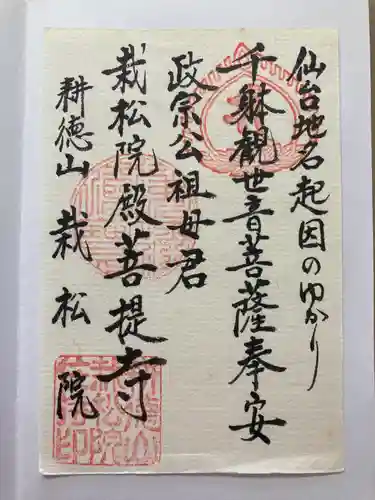 仙台地名起因のゆかり
千躰観世音菩薩奉安
政宗公祖母君
栽松院殿菩提寺
耕徳山 栽松院